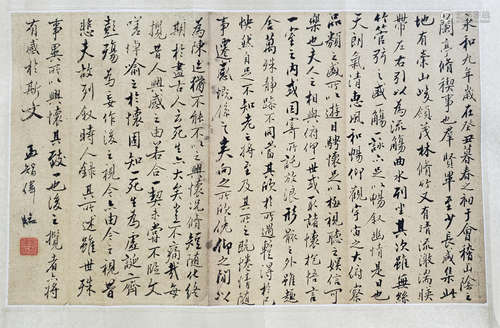 永和九年歲在癸丑暮春之初于會稽山陰之
蘭亭脩稧事也羣賢畢至少長咸集此
地有崇山峻領茂林脩竹又有清流激湍暎
帶左右引以為流觴曲水列坐其次雖無絲
竹管弦之盛一觴一詠亦足以暢叙幽情是日也
天朗氣清惠風和暢仰觀宇宙之大俯察
品類之盛所以遊目騁懷足以極視聽之娛信可
樂也夫人之相與俯仰一世或取諸懷抱悟言
一室之內或因寄所託放浪形骸之外雖趣
舍萬殊靜躁不同當其欣於所遇暫得於己
怏然自足不知老之將至及其所之既惓情隨
事遷感慨係之矣向之所欣俛仰之間以
為陳迹猶不能不以之興懷況脩短隨化終
期於盡古人云死生亦大矣豈不痛哉每
攬昔人興感之由若合一契未嘗不臨文
嗟悼喻之於懷固知一死生為虛誕齊
彭殤為妄作後之視今亦由今之視昔
悲夫故列叙時人錄其所述雖世殊
事異所以興懷其致一也後之攬者亦將
有感於斯文
臨